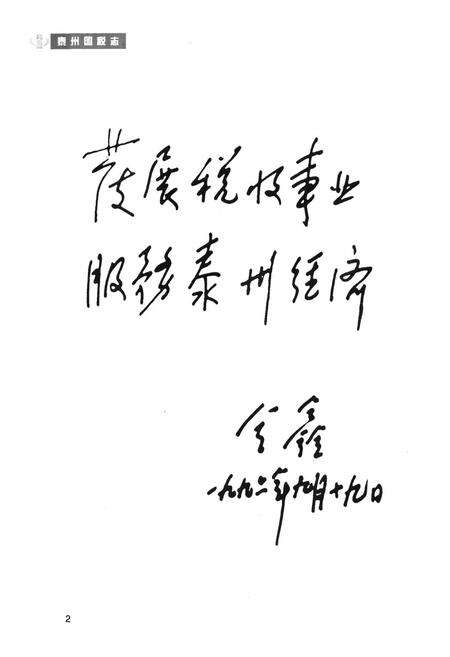 泰州国税志
發展税收事业
服務泰州經济
金鑫
一九九六年九月十九日
2